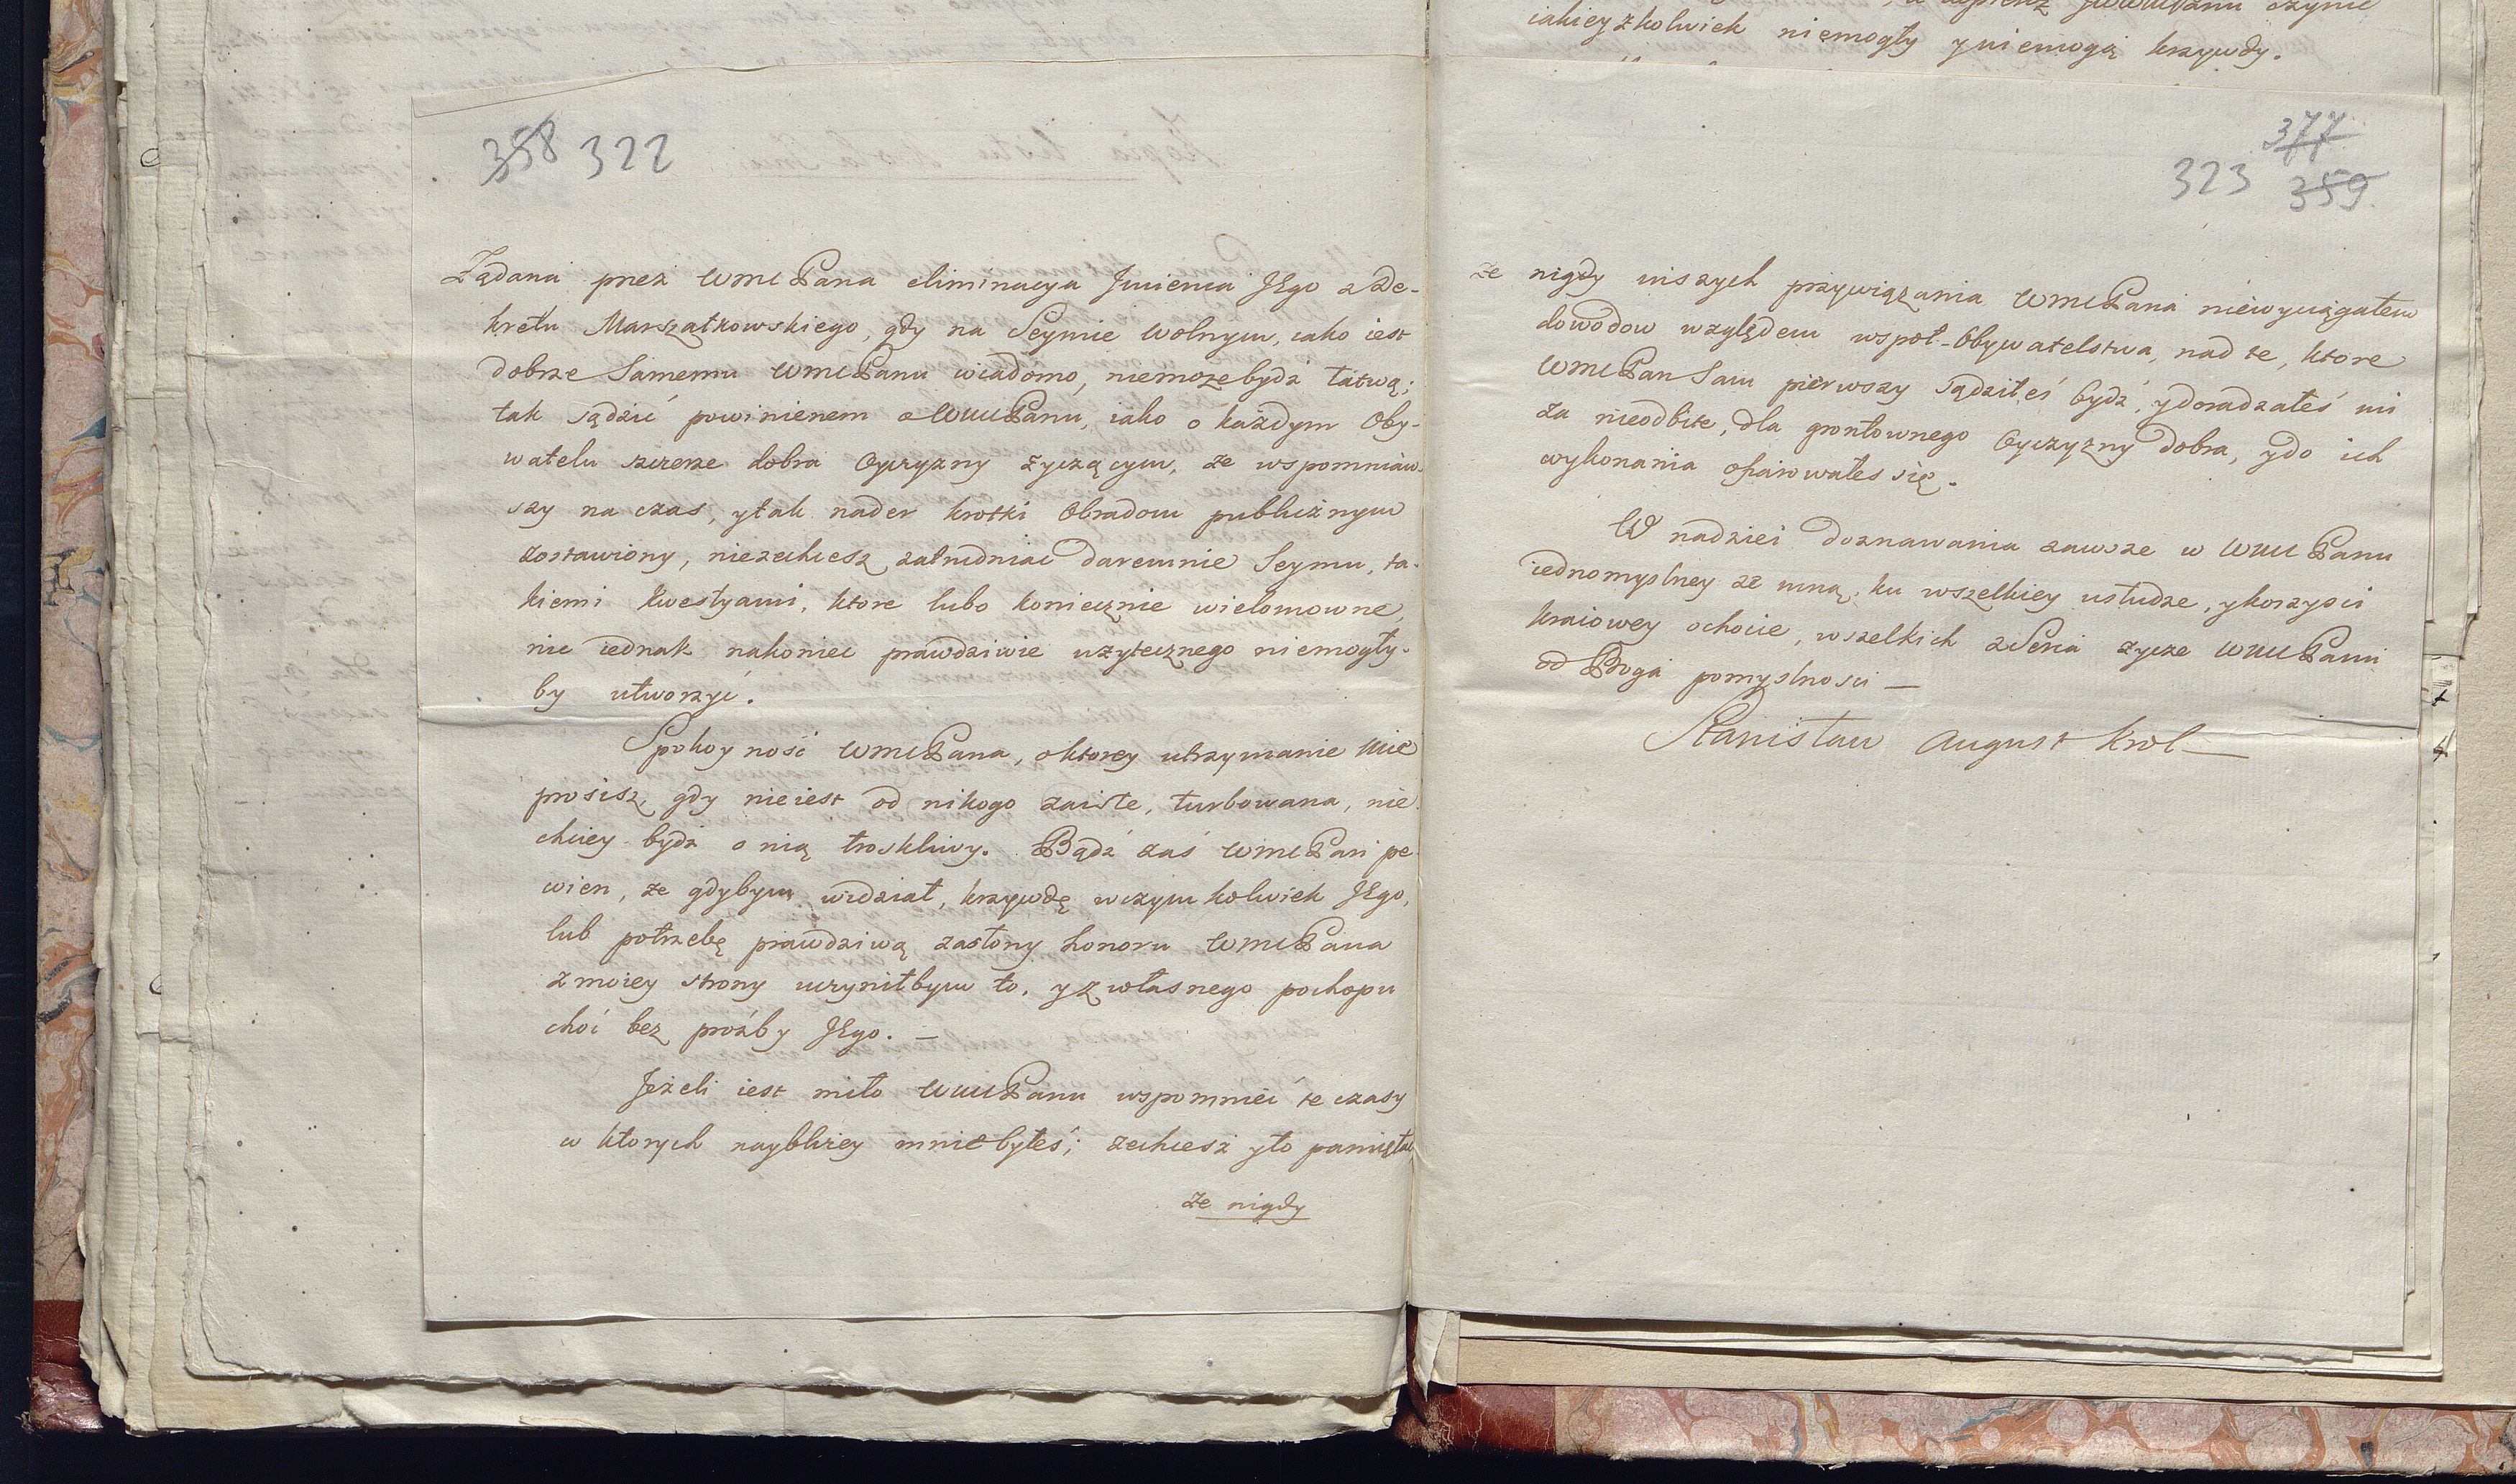 358 322
Żądana przez WMCPana eliminacya Jmienia JEgo z De-
kretu Marszałkowskiego, gdy na Seymie wolnym, iako iest
dobrze Samemu WMCPanu wiadomo, niemoże bydź łatwą;
tak sądzić powinienem o WMCPanu, iako o każdym Oby-
watelu szczerze dobra Oyczyzny życzącym, że wspomniaw-
szy na czas, y tak nader krotki Obradom publicznym
zostawiony, niezechcesz zatrudniać daremnie Seymu, ta-
kiemi kwestyami, ktore lubo koniecznie wielomowne,
nic iednak nakoniec prawdziwie użytecznego niemogły-
by utworzyć.
Spokoyność WMCPana, o ktorey utrzymanie Mie
prosisz, gdy nieiest od nikogo zaiste, turbowana, nie-
chciey bydź o nią troskliwy. Bądź zaś WMCPan pe-
wien, że gdybym widział, krzywdę w czym kolwiek JEgo,
lub potrzebę prawdziwą zasłony honoru WMCPana
z moiey strony uczyniłbym to, y z własnego pochopu
choć bez proźby JEgo. —
Jeżeli iest miło WMCPanu wspomnieć te czasy
w ktorych naybliżey mnie byłeś; zechcesz y to pamiętać
że nigdy
iakieyzkolwiek niemogły y niemogą krzywdy.
377
323 359
że nigdy inszych przywiązania WMCPana niewyciągałem
dowodow względem wspoł-Obywatelstwa, nad te, ktore
WMCPan Sam pierwszy sądziłeś bydź, y doradzałeś mi
za nieodbite, dla gruntownego Oyczyzny dobra, y do ich
wykonania ofiarowałeś się.
W nadziei doznawania zawsze w WMCPanu
iednomyslney ze mną, ku wszelkiey usłudze, y korzysci
kraiowey ochocie, wszelkich z Serca życzę WMCPanu
od Boga pomyslnosci —
Stanisław August Krol —